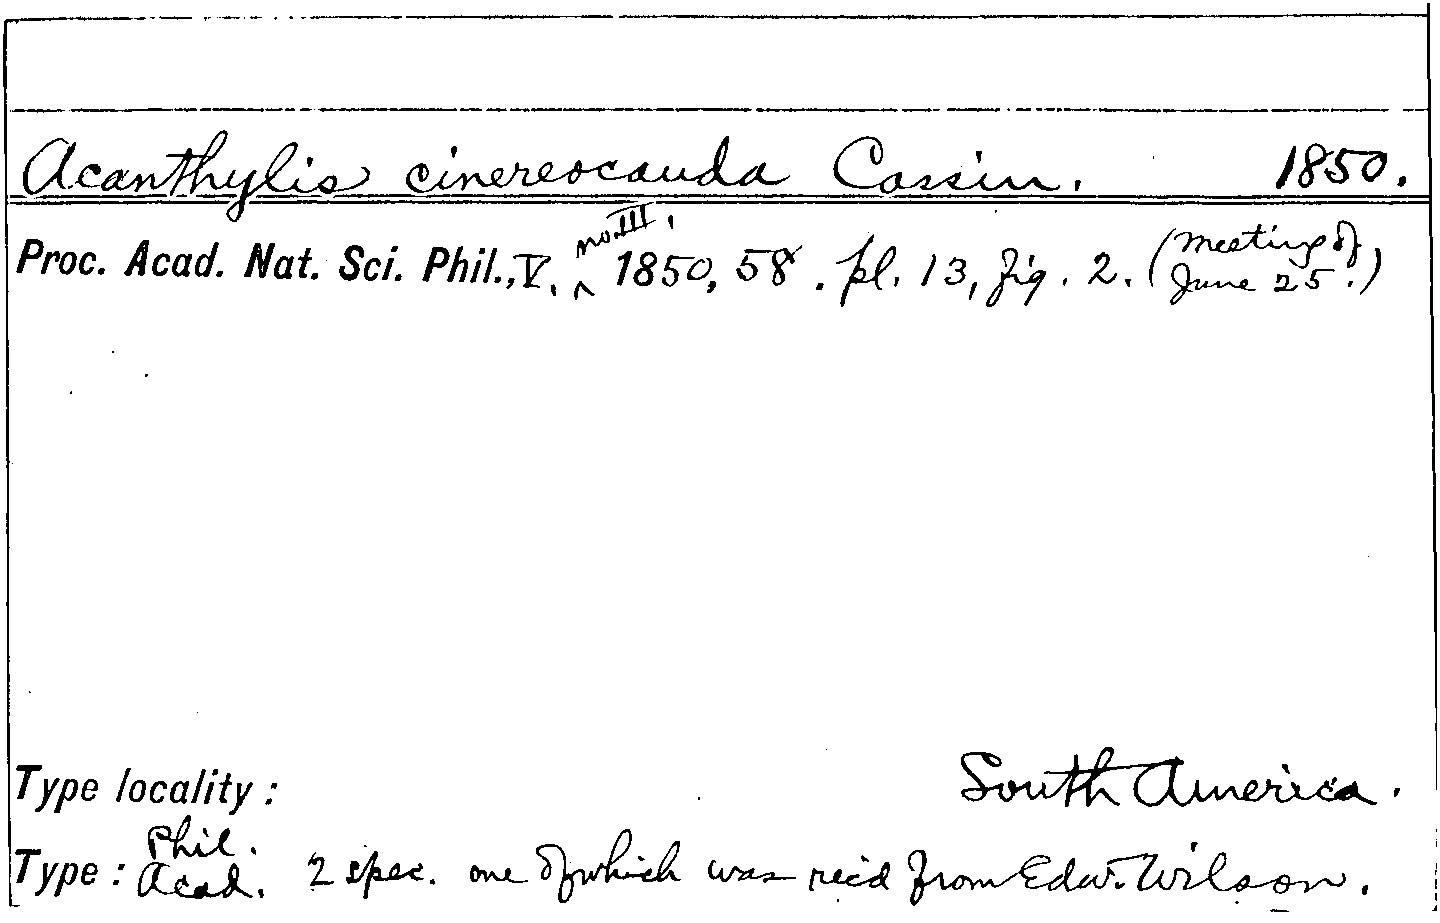 Acanthylis cinereocauda Cassin. 1850.
Proc. Acad. Nat. Sci. Phil., V. no. III, 1850, 58. pl. 13, fig. 2. (Meeting of June 25.)
Type locality: South America.
Type: Phil. Acad. 2 spec. one of which was rec'd from Edw. Wilson.